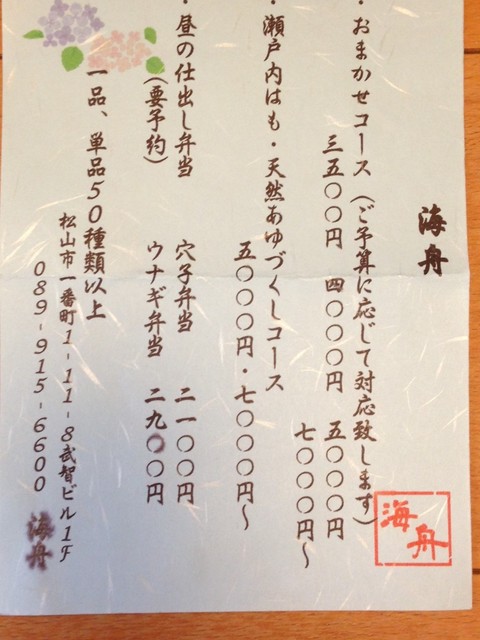 海舟
・おまかせコース（ご予算に応じて対応致します）
三五〇〇円 四〇〇〇円 五〇〇〇円
七〇〇〇円～
・瀬戸内はも・天然あゆづくしコース
五〇〇〇円・七〇〇〇円～
・昼の仕出し弁当 穴子弁当 二一〇〇円
（要予約） ウナギ弁当 二九〇〇円
一品、単品50種類以上
松山市一番町1-11-8武智ビル1F
089-915-6600 海舟
海舟